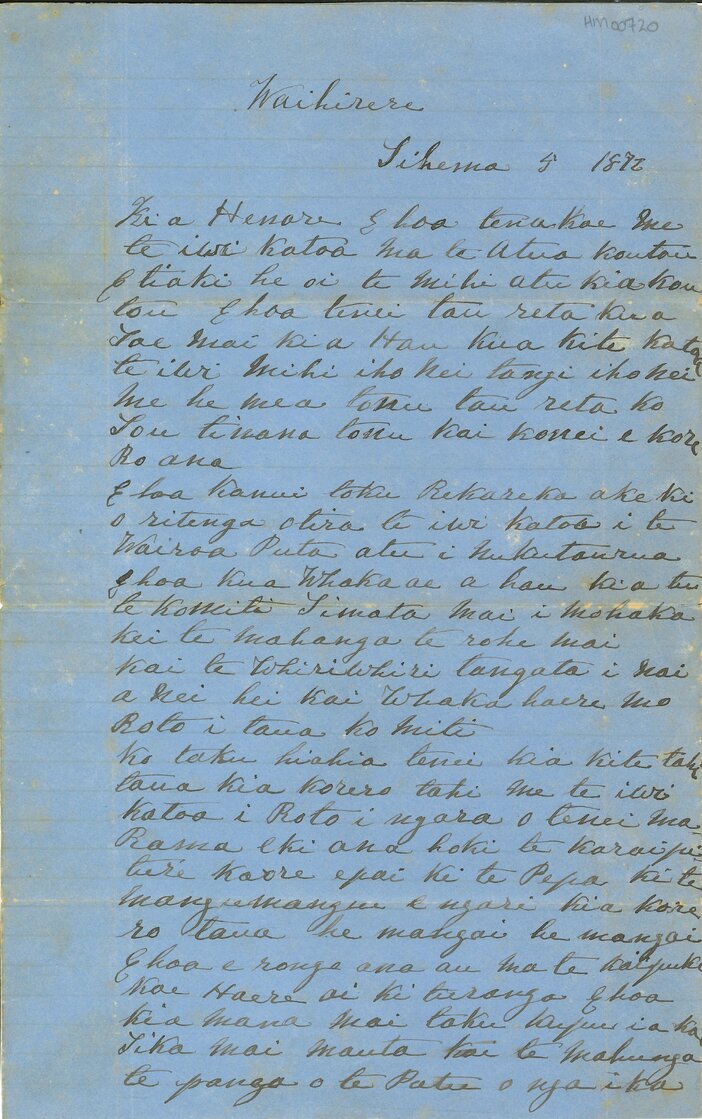 HM00720
Waihirere
Tihema 5 1872
Ki a Henare E hoa tena koe me
te iwi katoa ma te Atua koutou
E tiaki he oi te mihi atu kia kou
tou E hoa tenei tau reta kua
Tae mai ki a Hau kua kite katoa
te iwi Mihi iho Nei tangi iho Nei
Me he mea tonu tau reta ko
Tou tinana tonu kai konei e kore
Ro ana
E hoa kanui toku Rekareka ake ki
o ritenga otira te iwi katoa i te
Wairoa Puta atu i Nukutaurua
E hoa kua Whakaae a hau kia tu
te komiti Timata mai i Mohaka
kai te mahanga te rohe mai
kai te Whiriwhiri tangata i nai
a Nei hei kai Whaka haere mo
Roto i taua ko Miti
Ko taku hiahia tenei kia kite tahi
taua kia korero tahi me te iwi
Katoa i Roto i ngara o tenei ma
Rama E ki ana hoki te karaipi
ture kaore epai ki te Pepa ki te
Mangumangu e ngari kia kore
ro taua he mangai he mangai
E hoa e rongo ana au ma te kaipuke
koe Haere ai ki turanga E hoa
kia mana mai taku kupu ia ka
Tika mai mauta kai te Mahunga
te panga o te Patu o nga ika